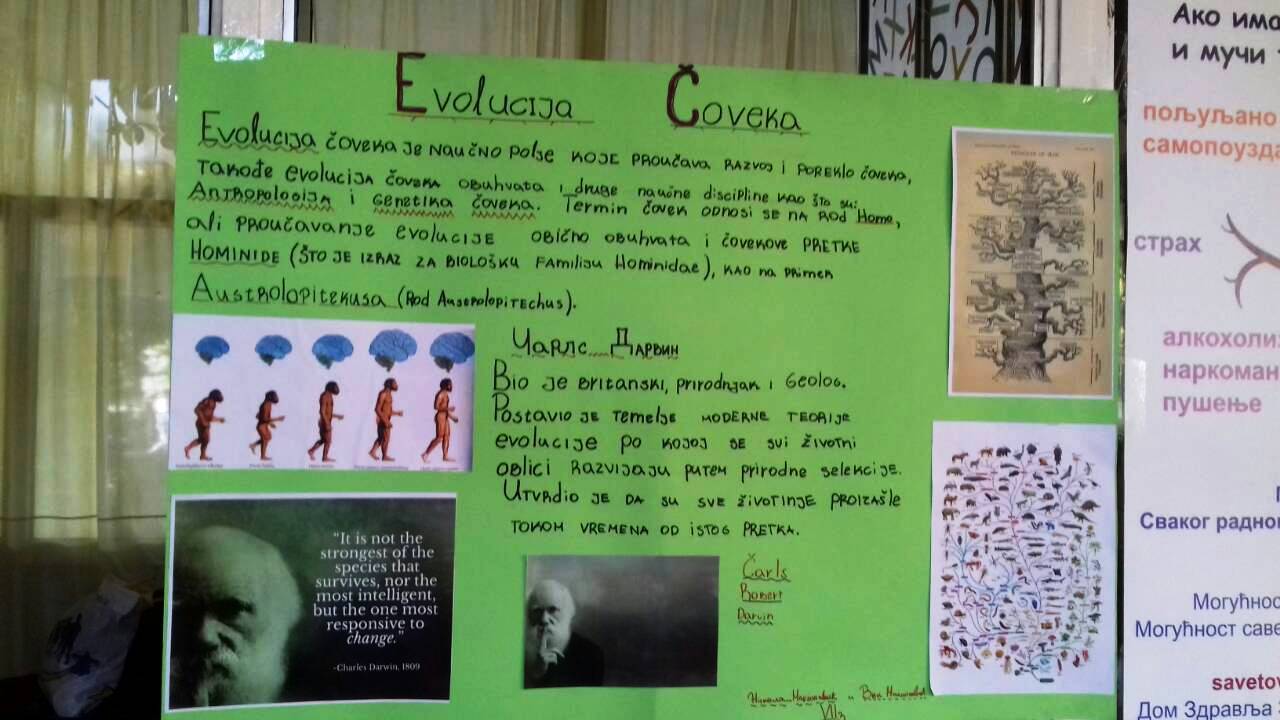 Evolucija Čoveka
Evolucija čoveka je naučno polje koje proučava razvoj i poreklo čoveka,
takođe evolucija čoveka obuhvata i druge naučne discipline kao što su:
Antropologija i Genetika čoveka. Termin čovek odnosi se na rod Homo,
ali proučavanje evolucije obično obuhvata i čovekove pretke
Hominide (što je izraz za biološku familiju Hominidae), kao na primer
Austrolopitekusa (rod Austrolopitechus).
Чарлс Дарвин
Bio je britanski, prirodnjak i geolog.
Postavio je temelje moderne teorije
evolucije po kojoj se svi životni
oblici razvijaju putem prirodne selekcije.
Utvrdio je da su sve životinje proizašle
tokom vremena od istog pretka.
"It is not the
strongest of the
species that
survives, nor the
most intelligent,
but the one most
responsive to
change."
-Charles Darwin, 1809
Čarls
Robert
Darwin
VII3
Ако има
и мучи
пољуљано
самопоузда
страх
алкохолиз
наркоман
пушење
Сваког радног
Могућност
Могућност саве
savetov
Дом Здравља